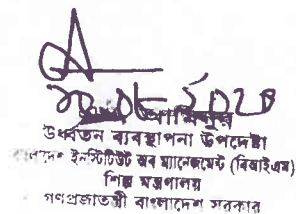 উর্ধ্বতন ব্যবস্থাপনা উপদেষ্টা
বাংলাদেশ ইনস্টিটিউট অব ম্যানেজমেন্ট (বিআইএম)
শিল্প মন্ত্রণালয়
গণপ্রজাতন্ত্রী বাংলাদেশ সরকার